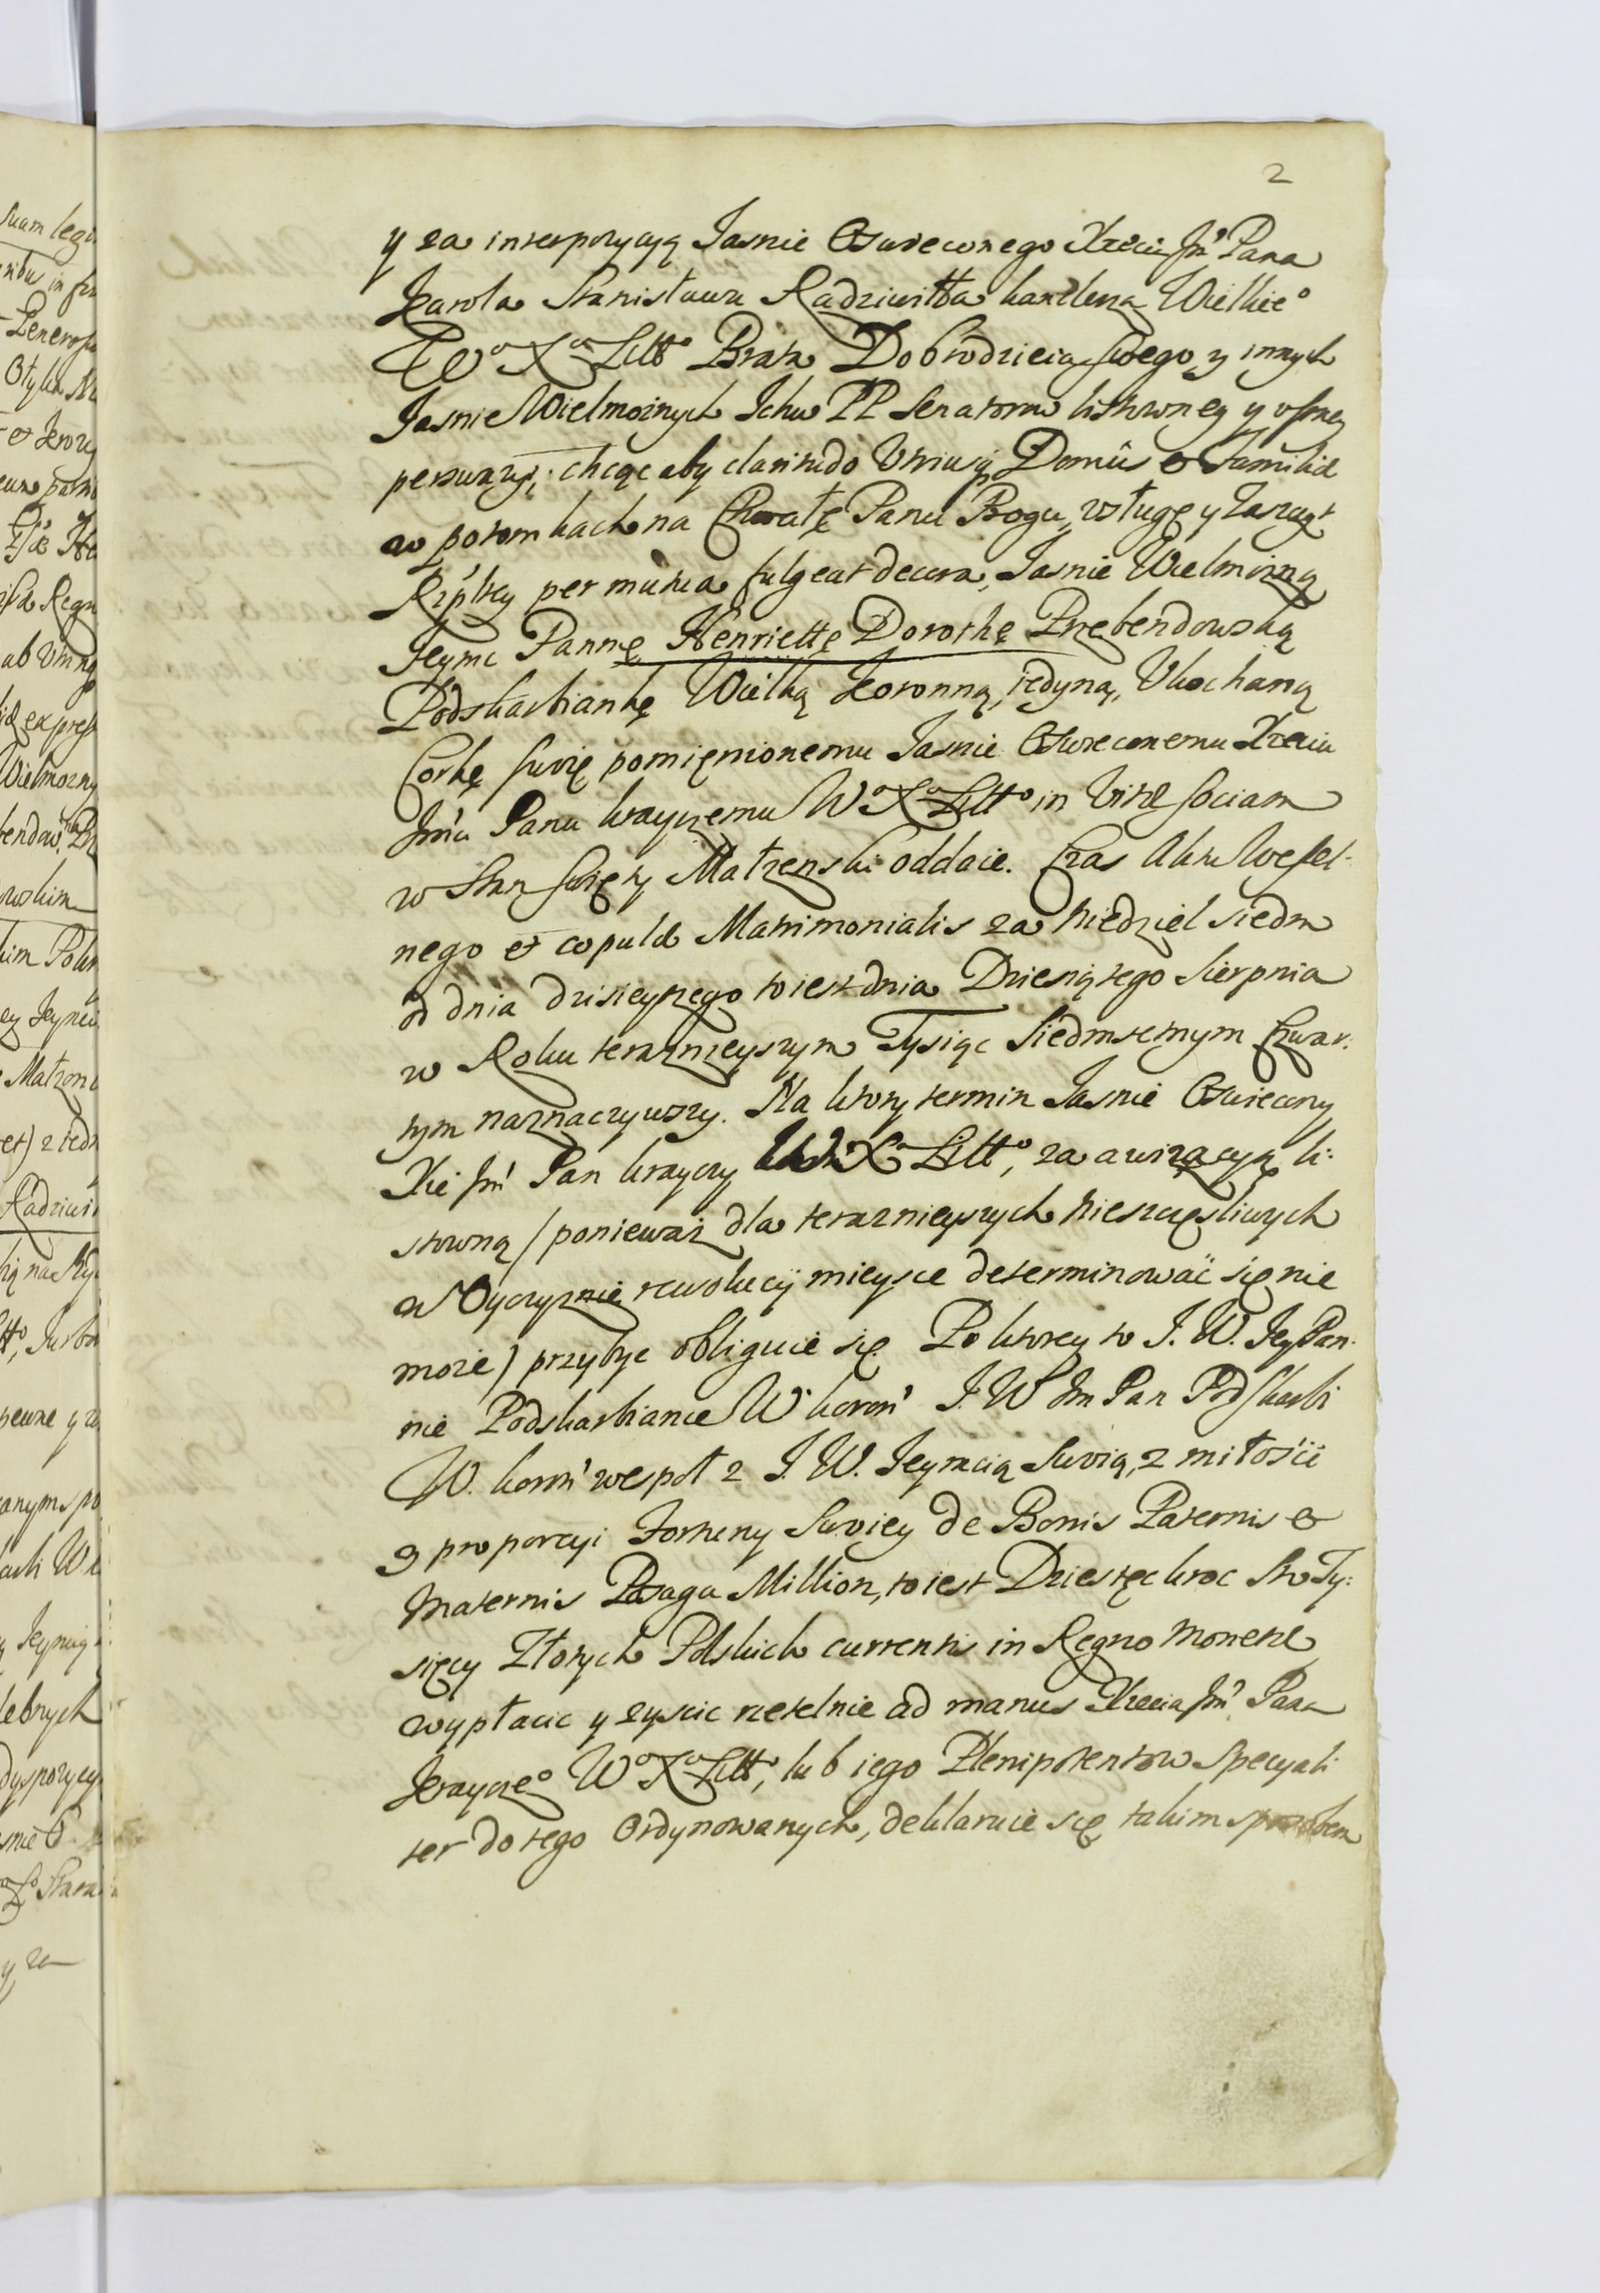 2
y za interpozycyą Jasnie Oswieconego Xzecia Jm̃ Pana
Karola Stanisława Radziwiłła kanclerza Wielkie°
W° X° Litt° Brata Dobrodzieia swego y innych
Jasnie Wielmoznych Ichw PP Senatorow listowney y ustney
perswazyi; chcąc aby claritudo Utriusq Domûs et Familiæ
w potomkach na Chwałę Panu Bogu, usługę y zaszczyt
Rzptey per mutua fulgeat decora, Jasnie Wielmozną
Jeymc Pannę Henriettę Dorothę Przebendowską
Podskarbiankę Wielką Koronną, iedyną, Ukochaną
Corkę swoię pomięnionemu Jasnie Oswieconemu Xzeciu
Jm̃ci Panu krayczemu W° X° Litt° in Vitæ sociam
w Stan swięty Małzenski oddaie. Czas Aktu Wesel-
nego et copulæ Matrimonialis za Niedziel siedm
od dnia dzisieyszego to iest dnia Dziesiątego Sierpnia
w Roku teraznieyszym Tysiąc Siedmsetnym Czwar:
tym naznaczywszy. Na ktory termin Jasnie Oswiecony
Xże Jm̃ Pan krayczy W X° Litt°, za awizacyą li:
stowną / poniewaz dla terazneyszych Nieszczęsliwych
w Oyczyznie rewolucij mieysce determinować się nie
moze) przybyc obliguie się. Po ktorey to J. W. Jey Pan:
nie Podskarbiance W koron̄ J. W Jm Pan Podskarbi
W. koron̄ wespoł z J. W. Jeymcią Swoią, z miłości
y proporcyi Fortuny Swoiey de Bonis Paternis et
Maternis Posagu Million, to iest Dziesięc kroc Sto Ty:
sięcy Złotych Polskich currentis in Regno Monetæ
wypłacic y zyscic rzetelnie ad manus Xzecia Jm̃ Pana
Krayczę° W° X° Litt°, lub iego Plenipotentow Specyali
ter do tego Ordynowanych, deklaruie się takim sposobem